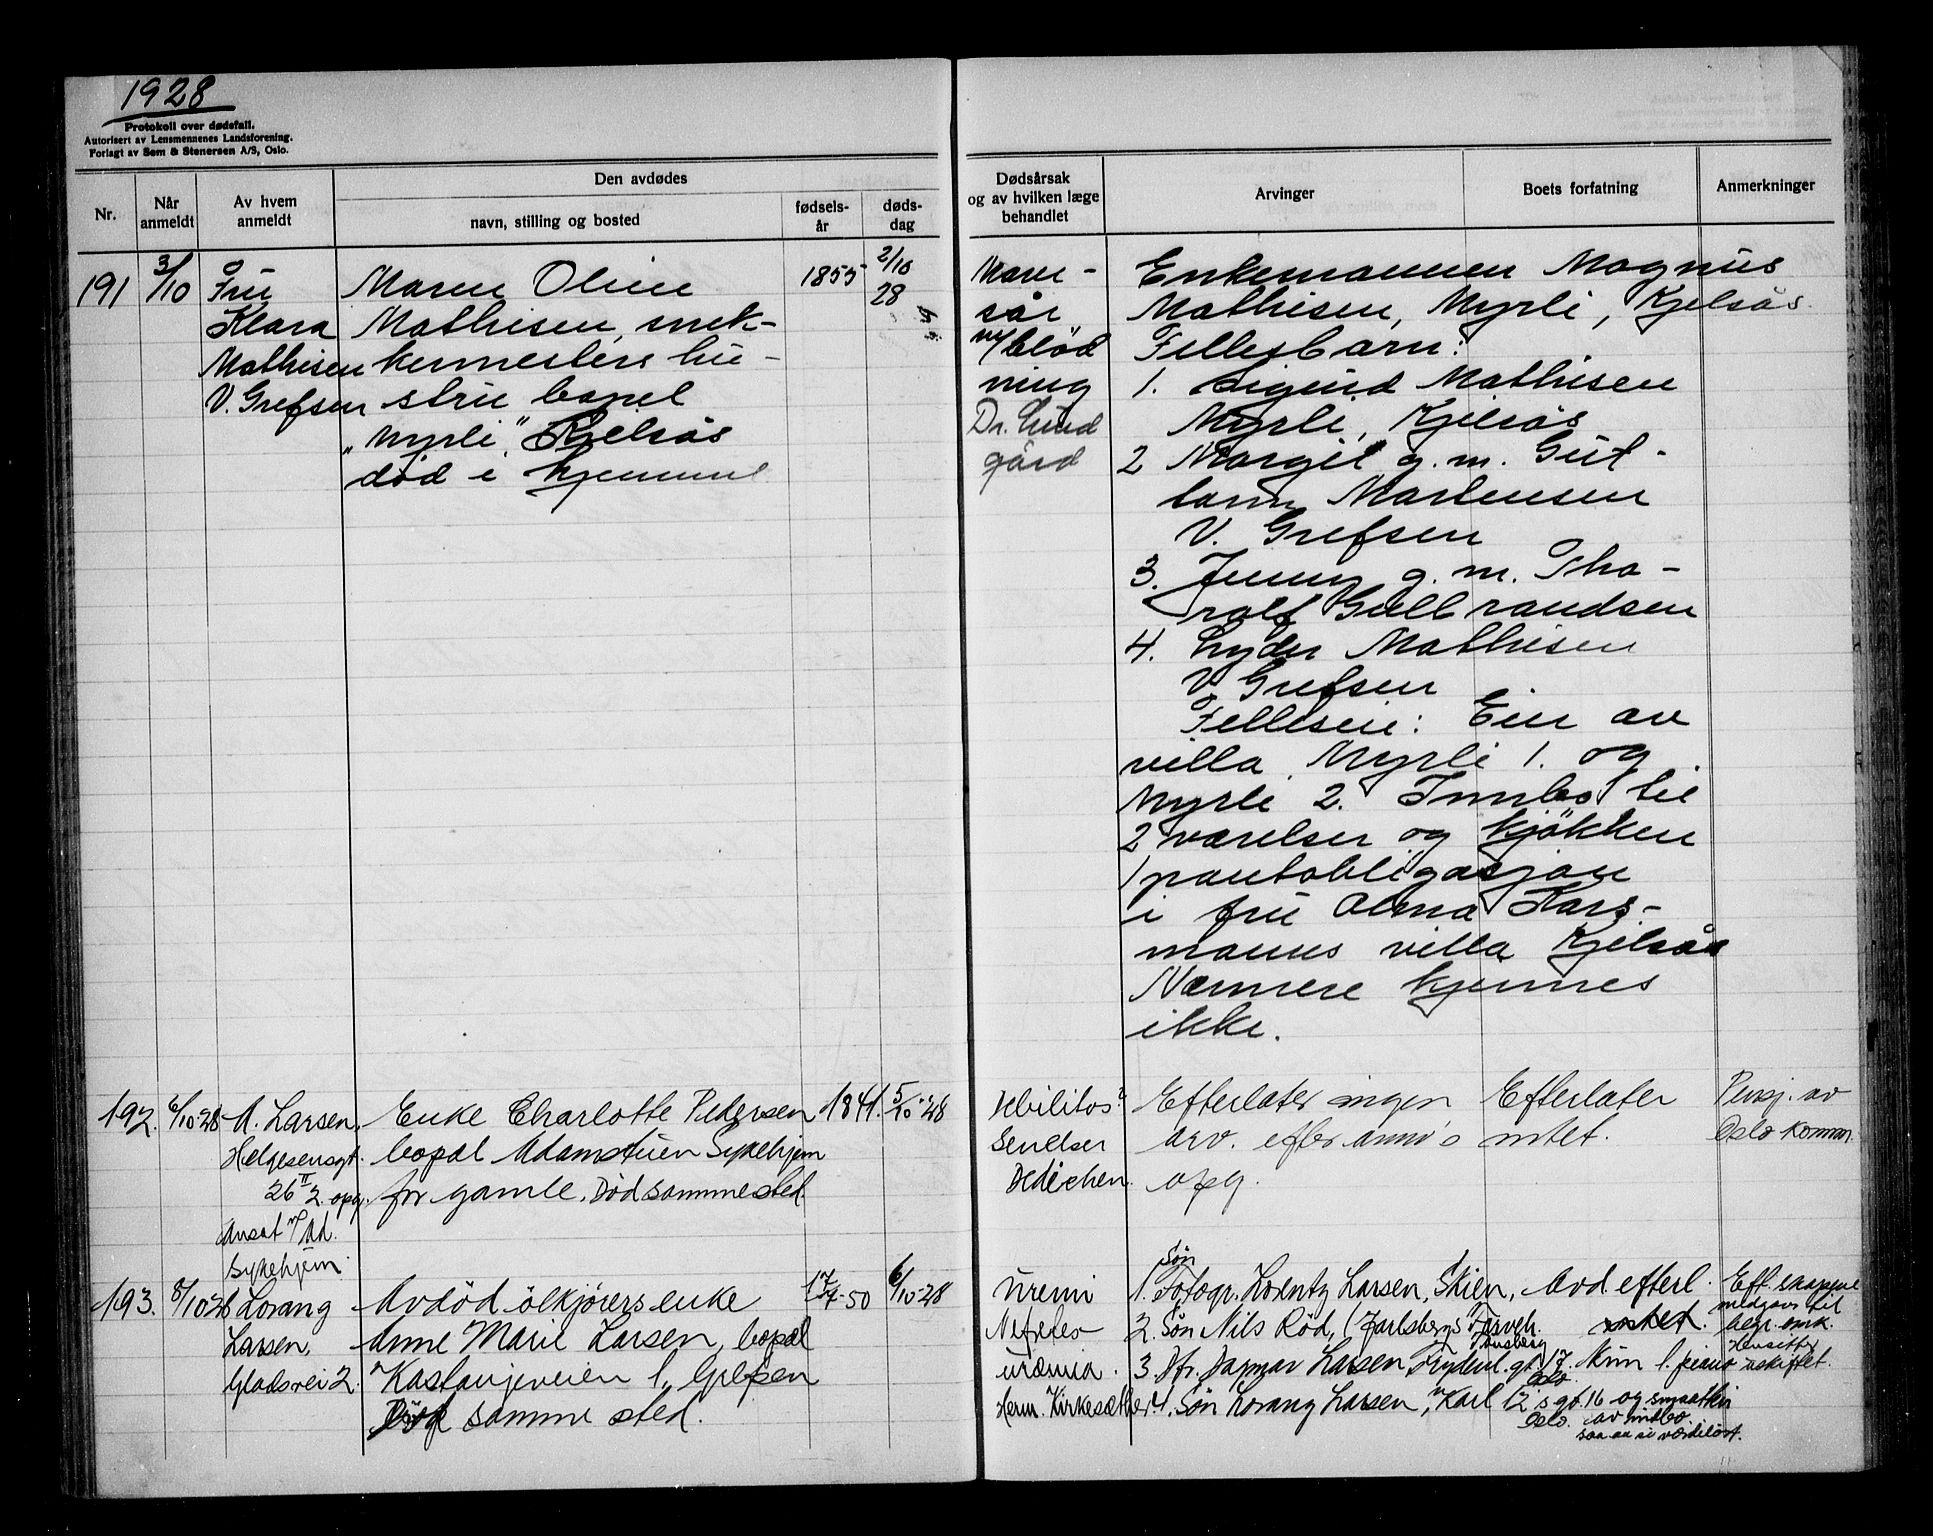 1928
Protokoll over dødsfall.
Autorisert av Lensmennenes Landsforening.
Forlagt av Sem & Stenersen A/S, Oslo.
Nr.
Når anmeldt
Av hvem anmeldt
Den avdødes
navn, stilling og bosted
fødsels-år
døds-dag
Dødsårsak
og av hvilken læge
behandlet
Arvinger
Boets forfatning
Anmerkninger
191
3/10
Fru
Klara
Mathisen
V. Grefsen
Maren Oline
Mathisen, snek-
kermesters hu-
stru bopel
"Myrli", Kjelsås
død i hjemmet
1855
2/10
28
Mave-
sår
m/blød
ning
Dr. Lund
gård
Enkemannen Magnus
Mathisen, Myrli, Kjelsås.
Fellesbarn:
1. Sigurd Mathisen
Myrli, Kjelsås
2 Margit g.m. Gut-
torm Martensen
V. Grefsen
3. Jenny g.m. Tho-
ralf Gulbrandsen
4. Lyder Mathisen
V. Grefsen
Felleseie: Eier av
villa Myrli 1. og
Myrli 2. Innbo til
2 værelser og kjøkken
1 pantobligasjon
i fru Alma Hars-
manns villa Kjelsås
Nærmere kjennes
ikke.
192.
6/10-28
A. Larsen,
Helgesensgt.
26 II 2. opg.
Ansat v/Ad.
Sykehjem
Enke Charlotte Pedersen
bopæl Adamstuen Sykehjem
for gamle. Død sammested.
1841.
5/10-28
Debilitas
Senelser
Dedichen.
Efterlater ingen
arv. efter anm's
opg.
Efterlater
intet.
Pensj. av
Oslo komm.
193.
8/10 28
Lorang
Larsen,
Gladsvei 2.
Avdød ølkjørers enke
Anne Marie Larsen, bopæl
Kastanjeveien 1, Grefsen
Død samme sted.
17/4-50
6/10-28
Uremi
Uræmia.
Herm. Kirkesæther
Søn
1. Fotogr. Lorentz Larsen, Skien,
2. Søn Nils Rød, Jarlsbergs
Tønsberg
3. Dagmar Larsen, Frydenl. gt. 17.
Oslo.
4. Søn Lorang Larsen, Karl 12's gt. 16
Oslo.
Avd. efterl.
intet.
Kun 1. piano
og smaatteri
av indbo
saa at si værdiløst.
Eff.
medgår til
begr. omk.
Hensitter
uskiftet.